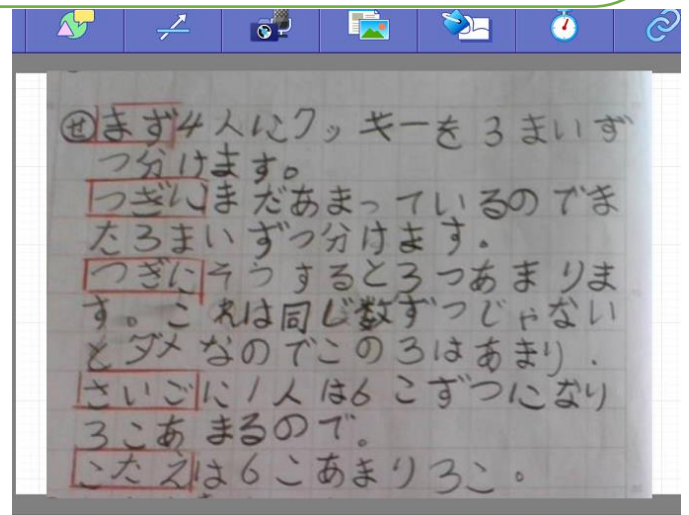 ㋝まず4人にクッキーを3まいず
つ分けます。
つぎにまだあまっているのでま
た3まいずつ分けます。
つぎにそうすると3つあまりま
す。これは同じ数ずつじゃない
とダメなのでこの3はあまり.
さいごに1人は6こずつになり
3こあまるので。
こたえは6こあまり3こ。